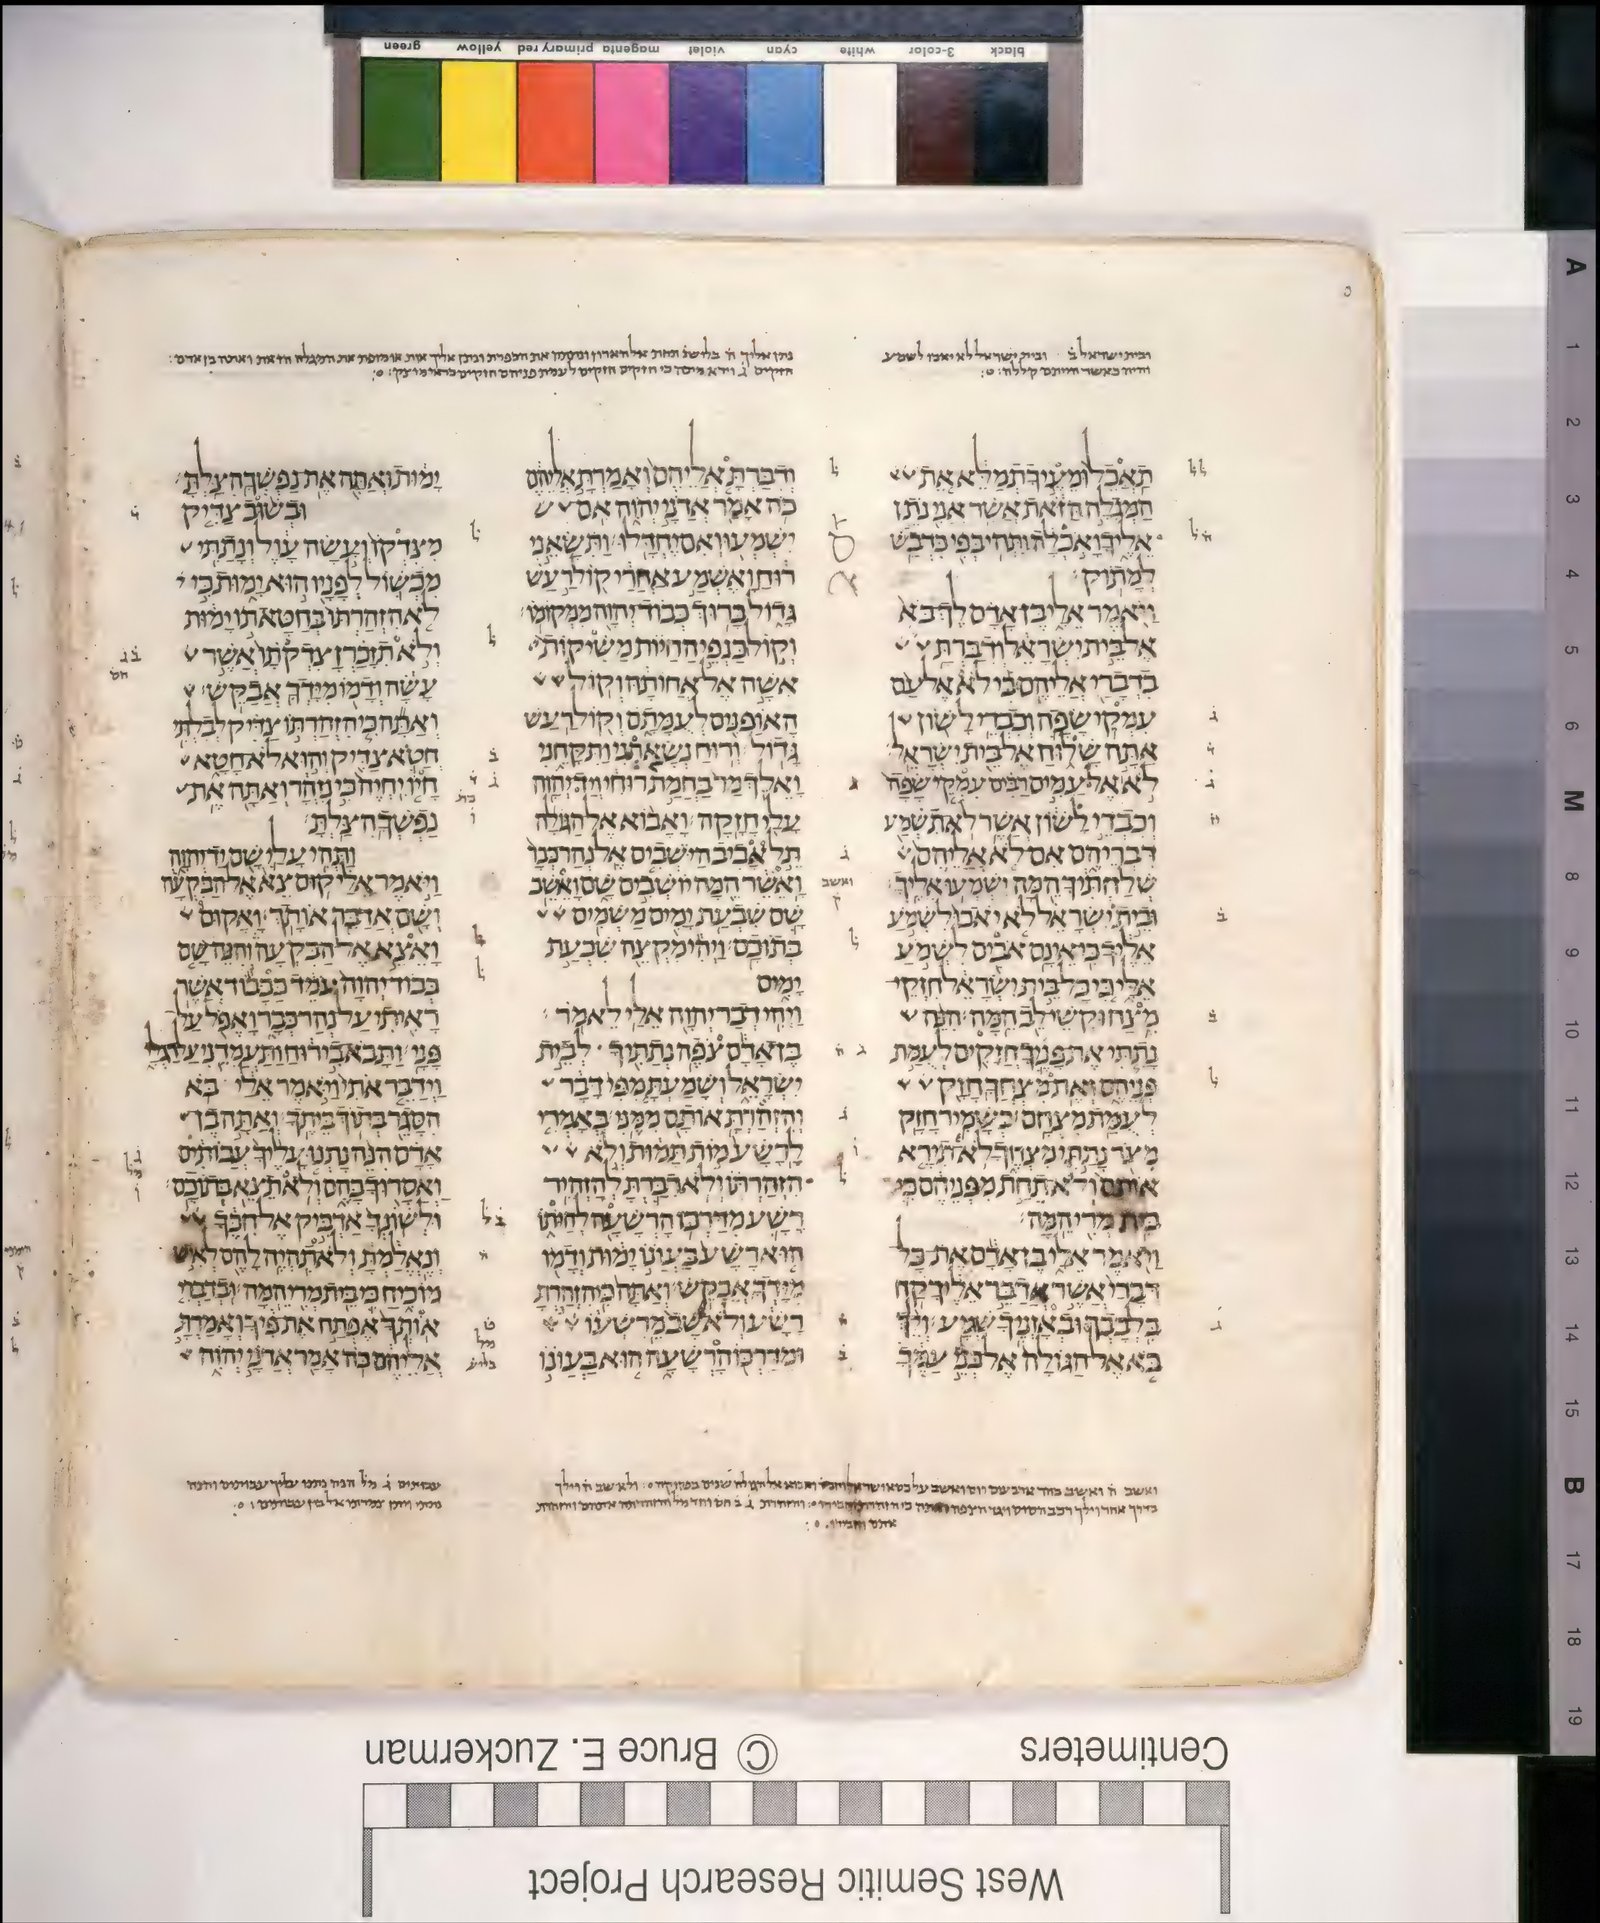 green yellow primary red magenta violet cyan white 3-color black
ובית ישראל ב ובית ישראל לא יאבו לשמע
והיה כאשר הייתם קללה
תאכל ומעיך תמלא את
המגלה הזאת אשר אני נתן
אליך ואכלה ותהי בפי כדבש
למתוק
ויאמר אלי בן אדם לך בא
אל בית ישראל ודברת
בדברי אליהם כי לא אל עם
עמקי שפה וכבדי לשון
אתה שלוח אל בית ישראל
לא אל עמים רבים עמקי שפה
וכבדי לשון אשר לא תשמע
דבריהם אם לא אליהם
שלחתיך המה ישמעו אליך
ובית ישראל לא יאבו לשמע
אליך כי אינם אבים לשמע
אלי כי כל בית ישראל חזקי
מצח וקשי לב המה הנה
נתתי את פניך חזקים לעמת
פניהם ואת מצחך חזק
לעמת מצחם כשמיר חזק
מצר נתתי מצחך לא תירא
אותם ולא תחת מפניהם כי
בית מרי המה
ויאמר אלי בן אדם את כל
דברי אשר אדבר אליך קח
בלבבך ובאזניך שמע ולך
בא אל הגולה אל בני עמך
ודברת אליהם ואמרת אליהם
כה אמר אדני יהוה אם
ישמעו ואם יחדלו ותשאני
רוח ואשמע אחרי קול רעש
גדול ברוך כבוד יהוה ממקומו
וקול כנפי החיות משיקות
אשה אל אחותה וקול
האופנים לעמתם וקול רעש
גדול ורוח נשאתני ותקחני
ואלך מר בחמת רוחי ויד יהוה
עלי חזקה ואבוא אל הגולה
תל אביב הישבים אל נהר כבר
ואשר המה יושבים שם ואשב
שם שבעת ימים משמים
בתוכם ויהי מקצה שבעת
ימים
ויהי דבר יהוה אלי לאמר
בן אדם צפה נתתיך לבית
ישראל ושמעת מפי דבר
והזהרת אותם ממני באמרי
לרשע מות תמות ולא
הזהרתו ולא דברת להזהיר
רשע מדרכו הרשעה לחיתו
הוא רשע בעונו ימות ודמו
מידך אבקש ואתה כי הזהרת
רשע ולא שב מרשעו
ומדרכו הרשעה הוא בעונו
ימות ואתה את נפשך הצלת
ובשוב צדיק
מצדקו ועשה עול ונתתי
מכשול לפניו הוא ימות כי
לא הזהרתו בחטאתו ימות
ולא תזכרן צדקתו אשר
עשה ודמו מידך אבקש
ואתה כי הזהרתו צדיק לבלתי
חטא צדיק והוא לא חטא
חיו יחיה כי נזהר ואתה את
נפשך הצלת
ותהי עלי שם יד יהוה
ויאמר אלי קום צא אל הבקעה
ושם אדבר אותך ואקום
ואצא אל הבקעה והנה שם
כבוד יהוה עמד ככבוד אשר
ראיתי על נהר כבר ואפל על
פני ותבא בי רוח ותעמדני על רגלי
וידבר אתי ויאמר אלי בא
הסגר בתוך ביתך ואתה בן
אדם הנה נתנו עליך עבותים
ואסרוך בהם ולא תצא בתוכם
ולשונך אדביק אל חכך
ונאלמת ולא תהיה להם לאיש
מוכיח כי בית מרי המה ובדברי
אותך אפתח את פיך ואמרת
אליהם כה אמר אדני יהוה
Centimeters © Bruce E. Zuckerman
West Semitic Research Project